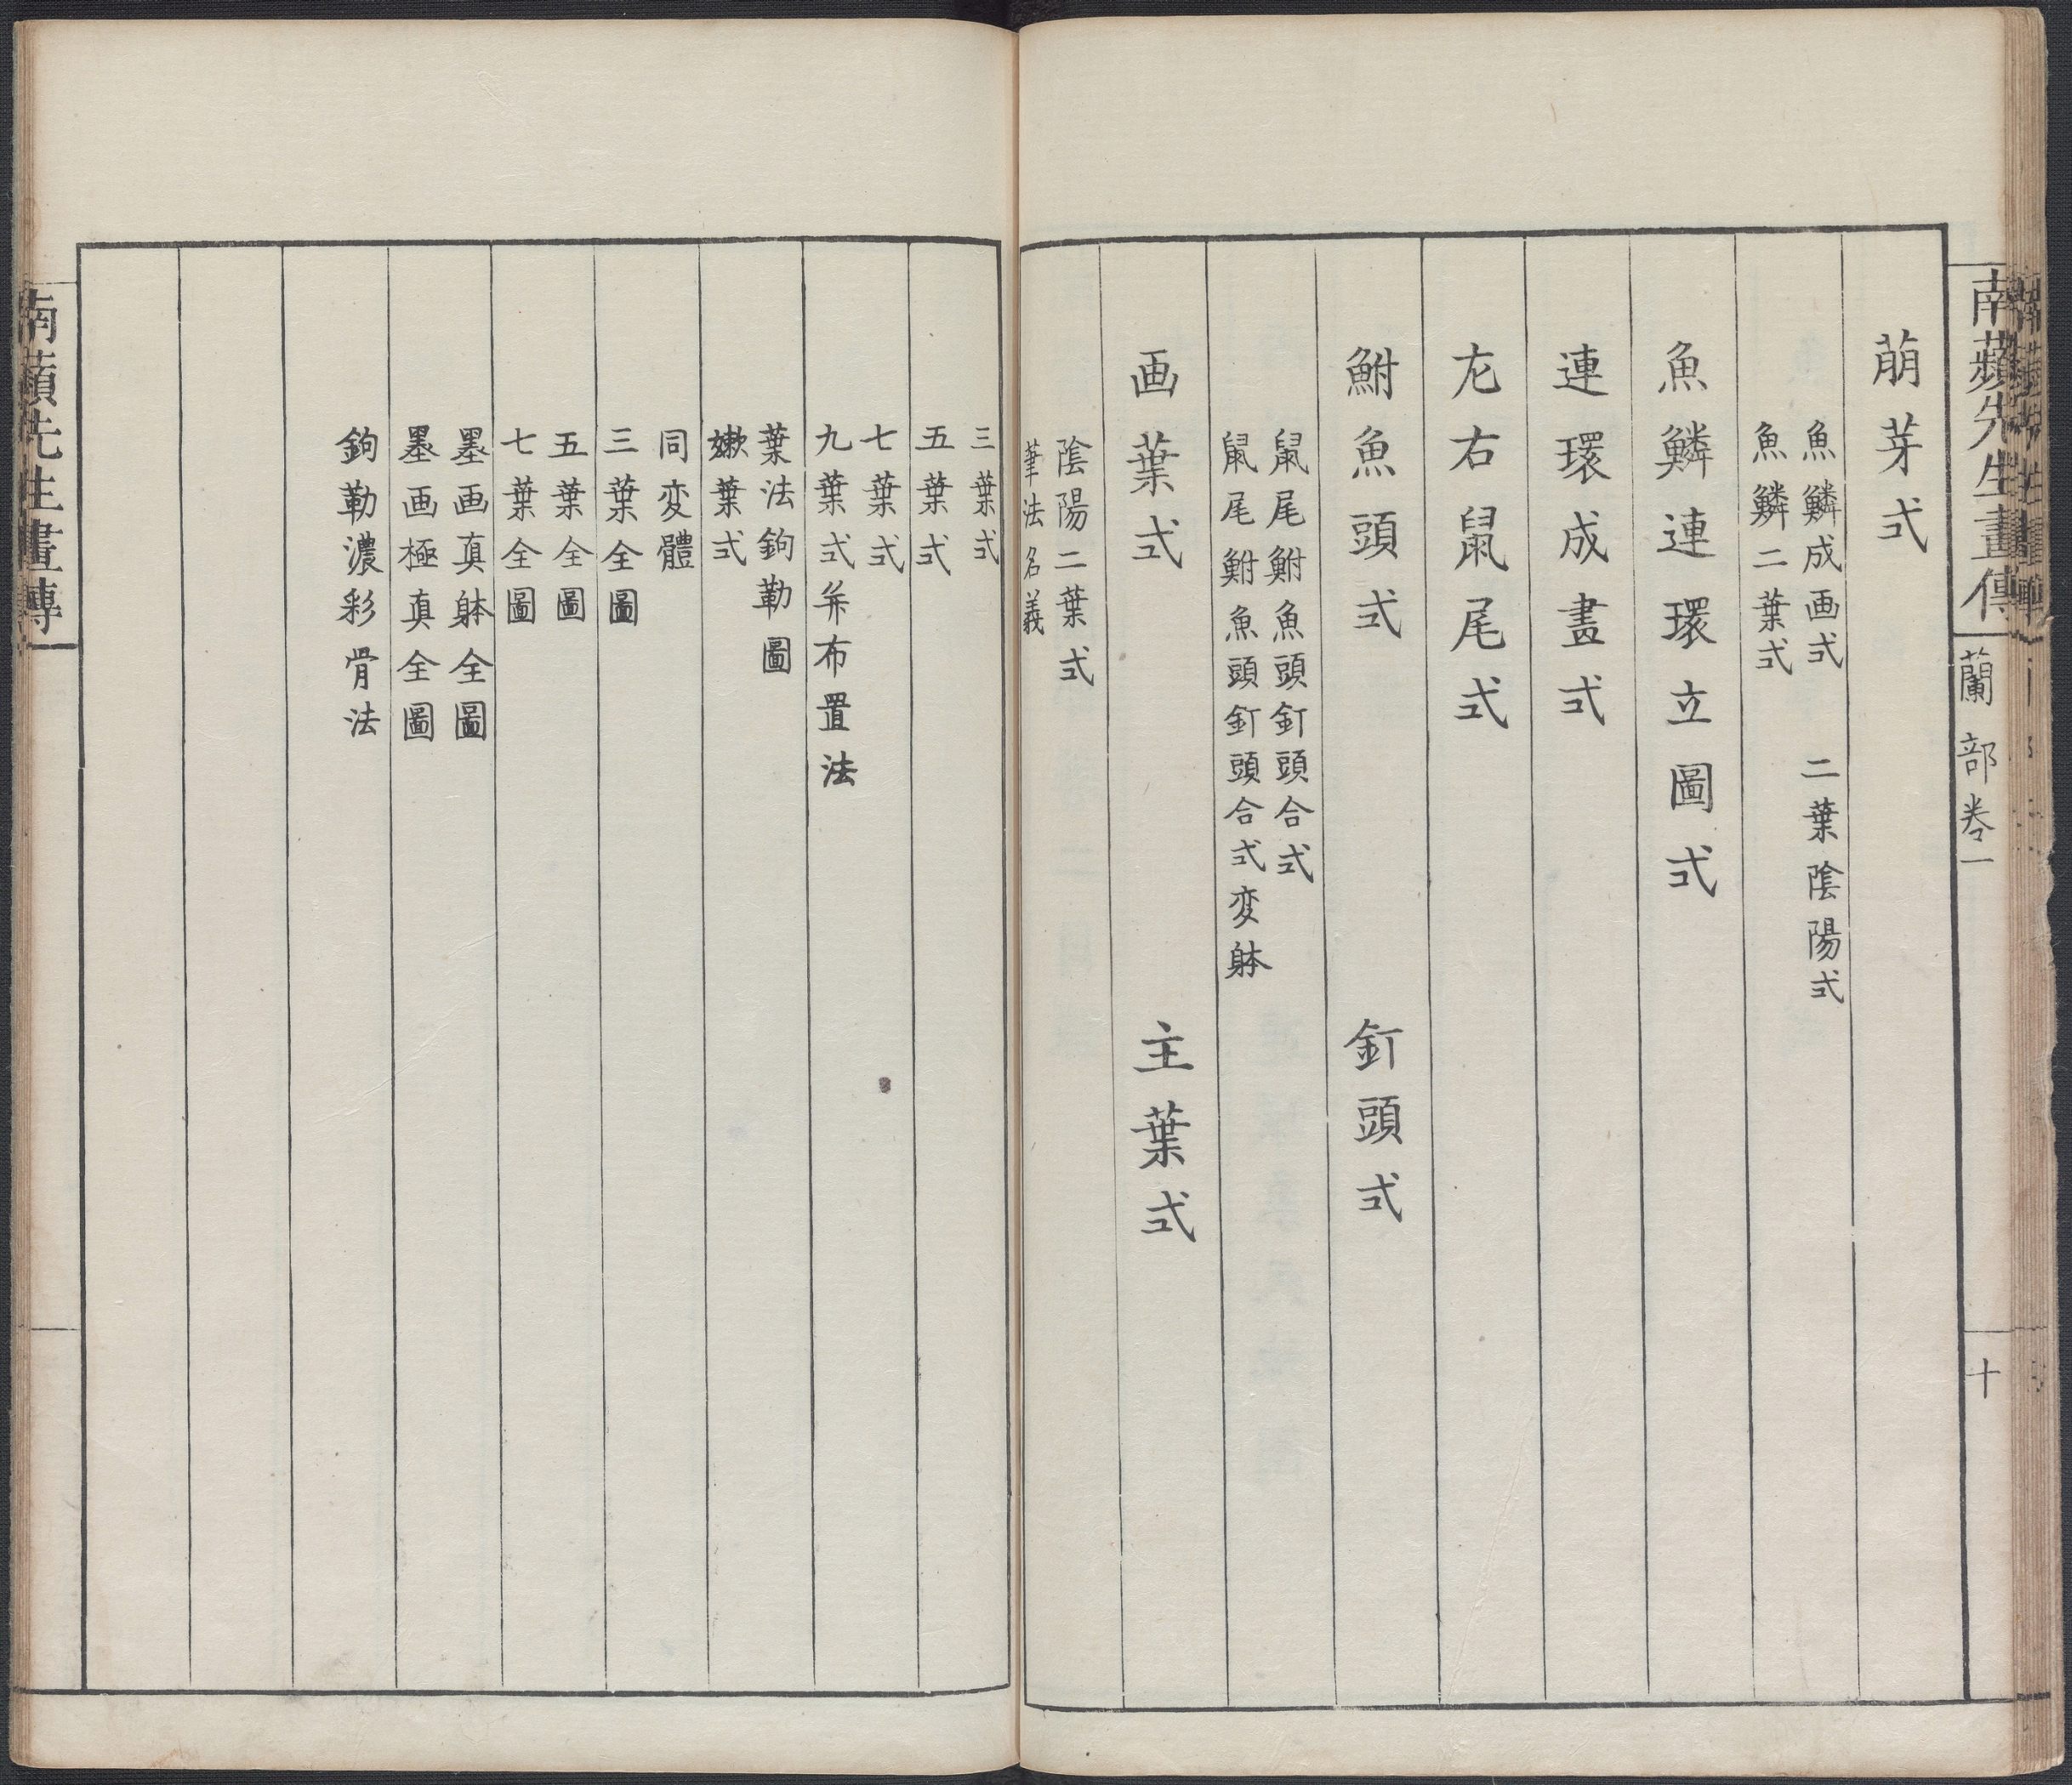 南蘋先生畫傳
蘭部卷一
十
萠芽式
魚鱗成画式 二葉陰陽式
魚鱗二葉式
魚鱗連環立圖式
連環成畫式
左右鼠尾式
鮒魚頭式 釘頭式
鼠尾鮒魚頭釘頭合式
鼠尾鮒魚頭釘頭合式変躰
画葉式 主葉式
陰陽二葉式
筆法名義
三葉式
五葉式
七葉式
九葉式并布置法
葉法鉤勒圖
嫩葉式
同変體
三葉全圖
五葉全圖
七葉全圖
墨画真躰全圖
墨画極真全圖
鉤勒濃彩骨法
南蘋先生畫傳